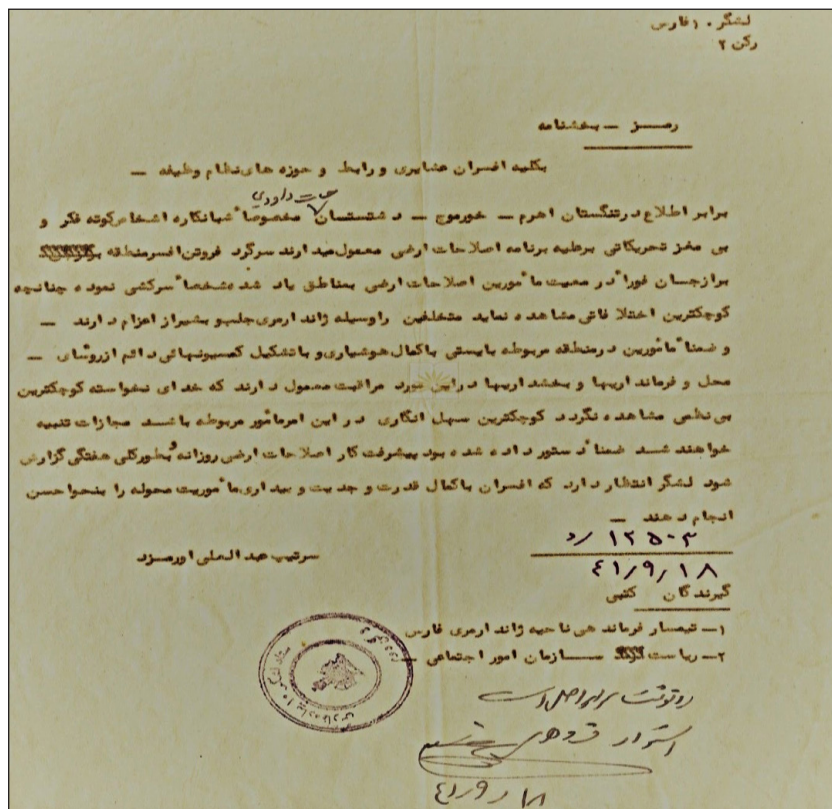 لشگر ۱۰ فارس
رکن ۲
رمــز – بخشنامه
بکلیه افسران عشایری و رابط و حوزه های نظام وظیفه –
حیات داودی
برابر اطلاع در تنگستان اهرم – خورموج – دشتستان مخصوصاً شبانکاره اشخاص کوته فکر و
بی مغز تحریکاتی برعلیه برنامه اصلاحات ارضی معمول میدارند سرگرد فروتن افسر منطقه
برازجان فوراً در معیت مأمورین اصلاحات ارضی بمناطق یاد شده شخصاً سرکشی نموده چنانچه
کوچکترین اختلافاتی مشاهده نماید متخلفین را وسیله ژاندارمری جلب و بشیراز اعزام دارند –
و ضمناً مأمورین در منطقه مربوطه بایستی باکمال هوشیاری و با تشکیل کمسیونهائی دائم از روئسای –
محل و فرمانداریها و بخشداریها در این مورد مراقبت معمول دارند که خدای نخواسته کوچکترین
بی نظمی مشاهده نگردد کوچکترین سهل انگاری در این امر مأمور مربوطه باشد مجازات تنبیه
خواهند شد ضمناً دستور داده شده بود پیشرفت کار اصلاحات ارضی روزانه و بطور کلی هفتگی گزارش
شود لشگر انتظار دارد که افسران باکمال قدرت و جدیت و بیداری مأموریت محوله را بنحو احسن
انجام دهند –
۱۲۵۰۳ / ر
سرتیپ عبدالعلی اورمزد
۴۱/۹/۱۸
گیرندگان کتبی
۱– تیمسار فرمانده هی ناحیه ژاندارمری فارس
۲– ریاست سازمان امور اجتماعی
رونوشت برابر اصل است
استوار
۴۱/۹/۱۸